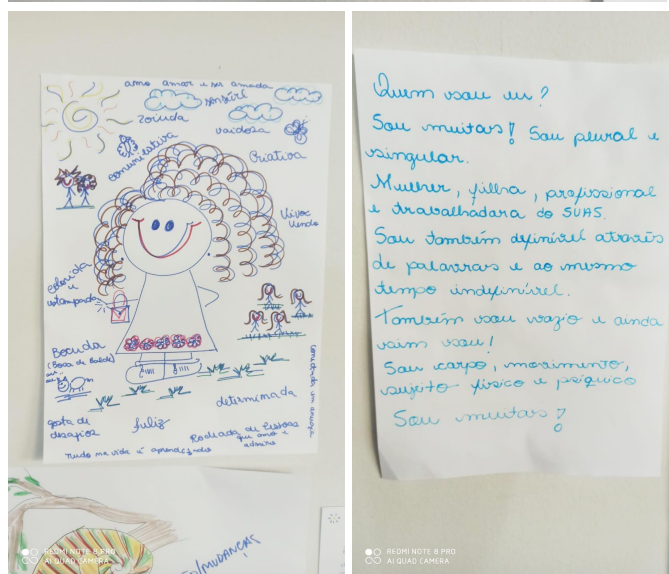 amo amar e ser amada
sensível
zoiuda
vaidosa
comunicativa
Criativa
colorida
e
estampada
Bocuda
(Boca de Balde)
gosta de
desafios
feliz
determinada
Rodeada de Pessoas
que amo e
admiro
Tudo na vida é aprendizado
/MUDANÇAS
REDMI NOTE 8 PRO
AI QUAD CAMERA
Quem sou eu?
Sou muitas! Sou plural e
singular.
Mulher, filha, profissional
e trabalhadara do SUAS.
Sou também definível através
de palavras e ao mesmo
tempo indefinível.
Também sou vazio e ainda
sim sou!
Sou corpo, movimento,
sujeito físico e psíquico
Sou muitas!
REDMI NOTE 8 PRO
AI QUAD CAMERA